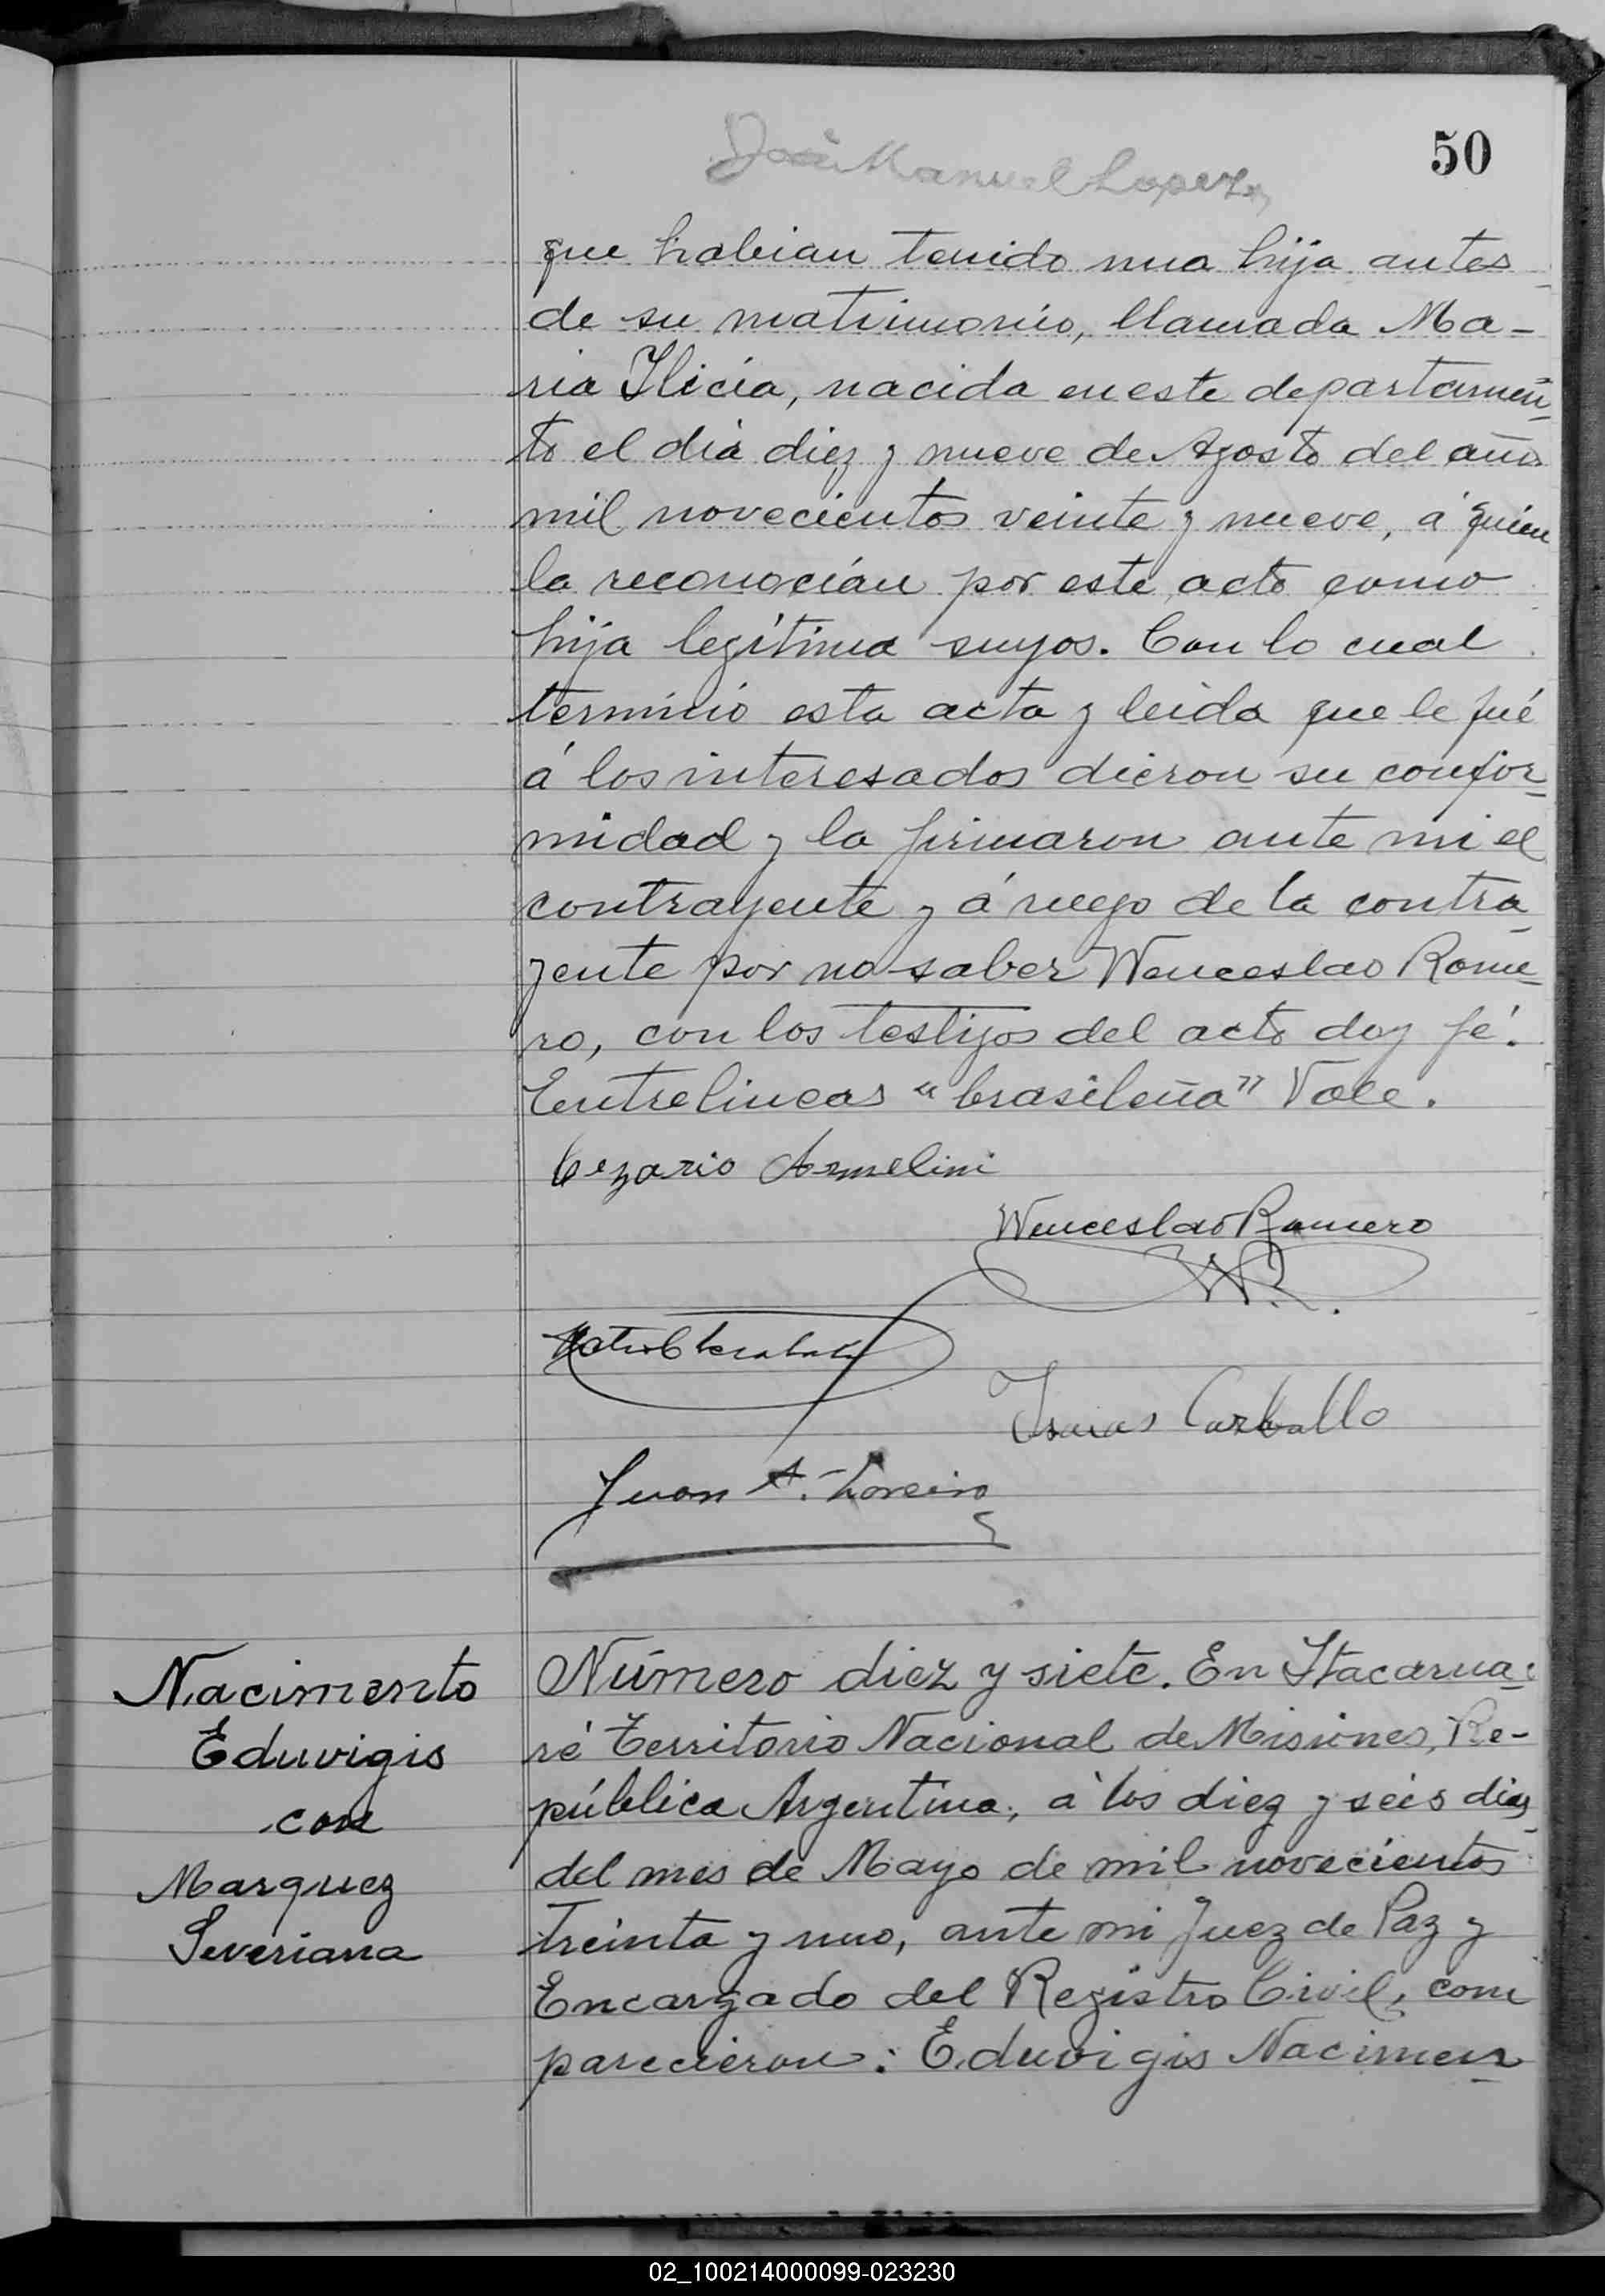 50
José Manuel Lopez
que habian tenido una hija antes
de su matrimonio, llamada Ma-
ria Ilicia, nacida en este departamen-
to el dia diez y nueve de Agosto del año
mil novecientos veinte y nueve, á quien
la reconocían por este acto como
hija legítima suyos. Con lo cual
terminó esta acta y leida que le fué
á los interesados dieron su confor-
midad y la firmaron ante mi el
contrayente y á ruego de la contra-
yente por no saber Wenceslao Rome-
ro, con los testigos del acto doy fé.
Entrelineas "brasileña" Vale.
Cezario Armelini
Wenceslao Romero
WR.
Isaias Carballo
Juan A.
Nacimento
Eduvigis
con
Marquez
Severiana
Número diez y siete. En Itacarua-
ré Territorio Nacional de Misiones, Re-
pública Argentina, á los diez y seis dias
del mes de Mayo de mil novecientos
treinta y uno, ante mi Juez de Paz y
Encargado del Registro Civil, com
parecieron: Eduvigis Nacimen-
02_100214000099-023230